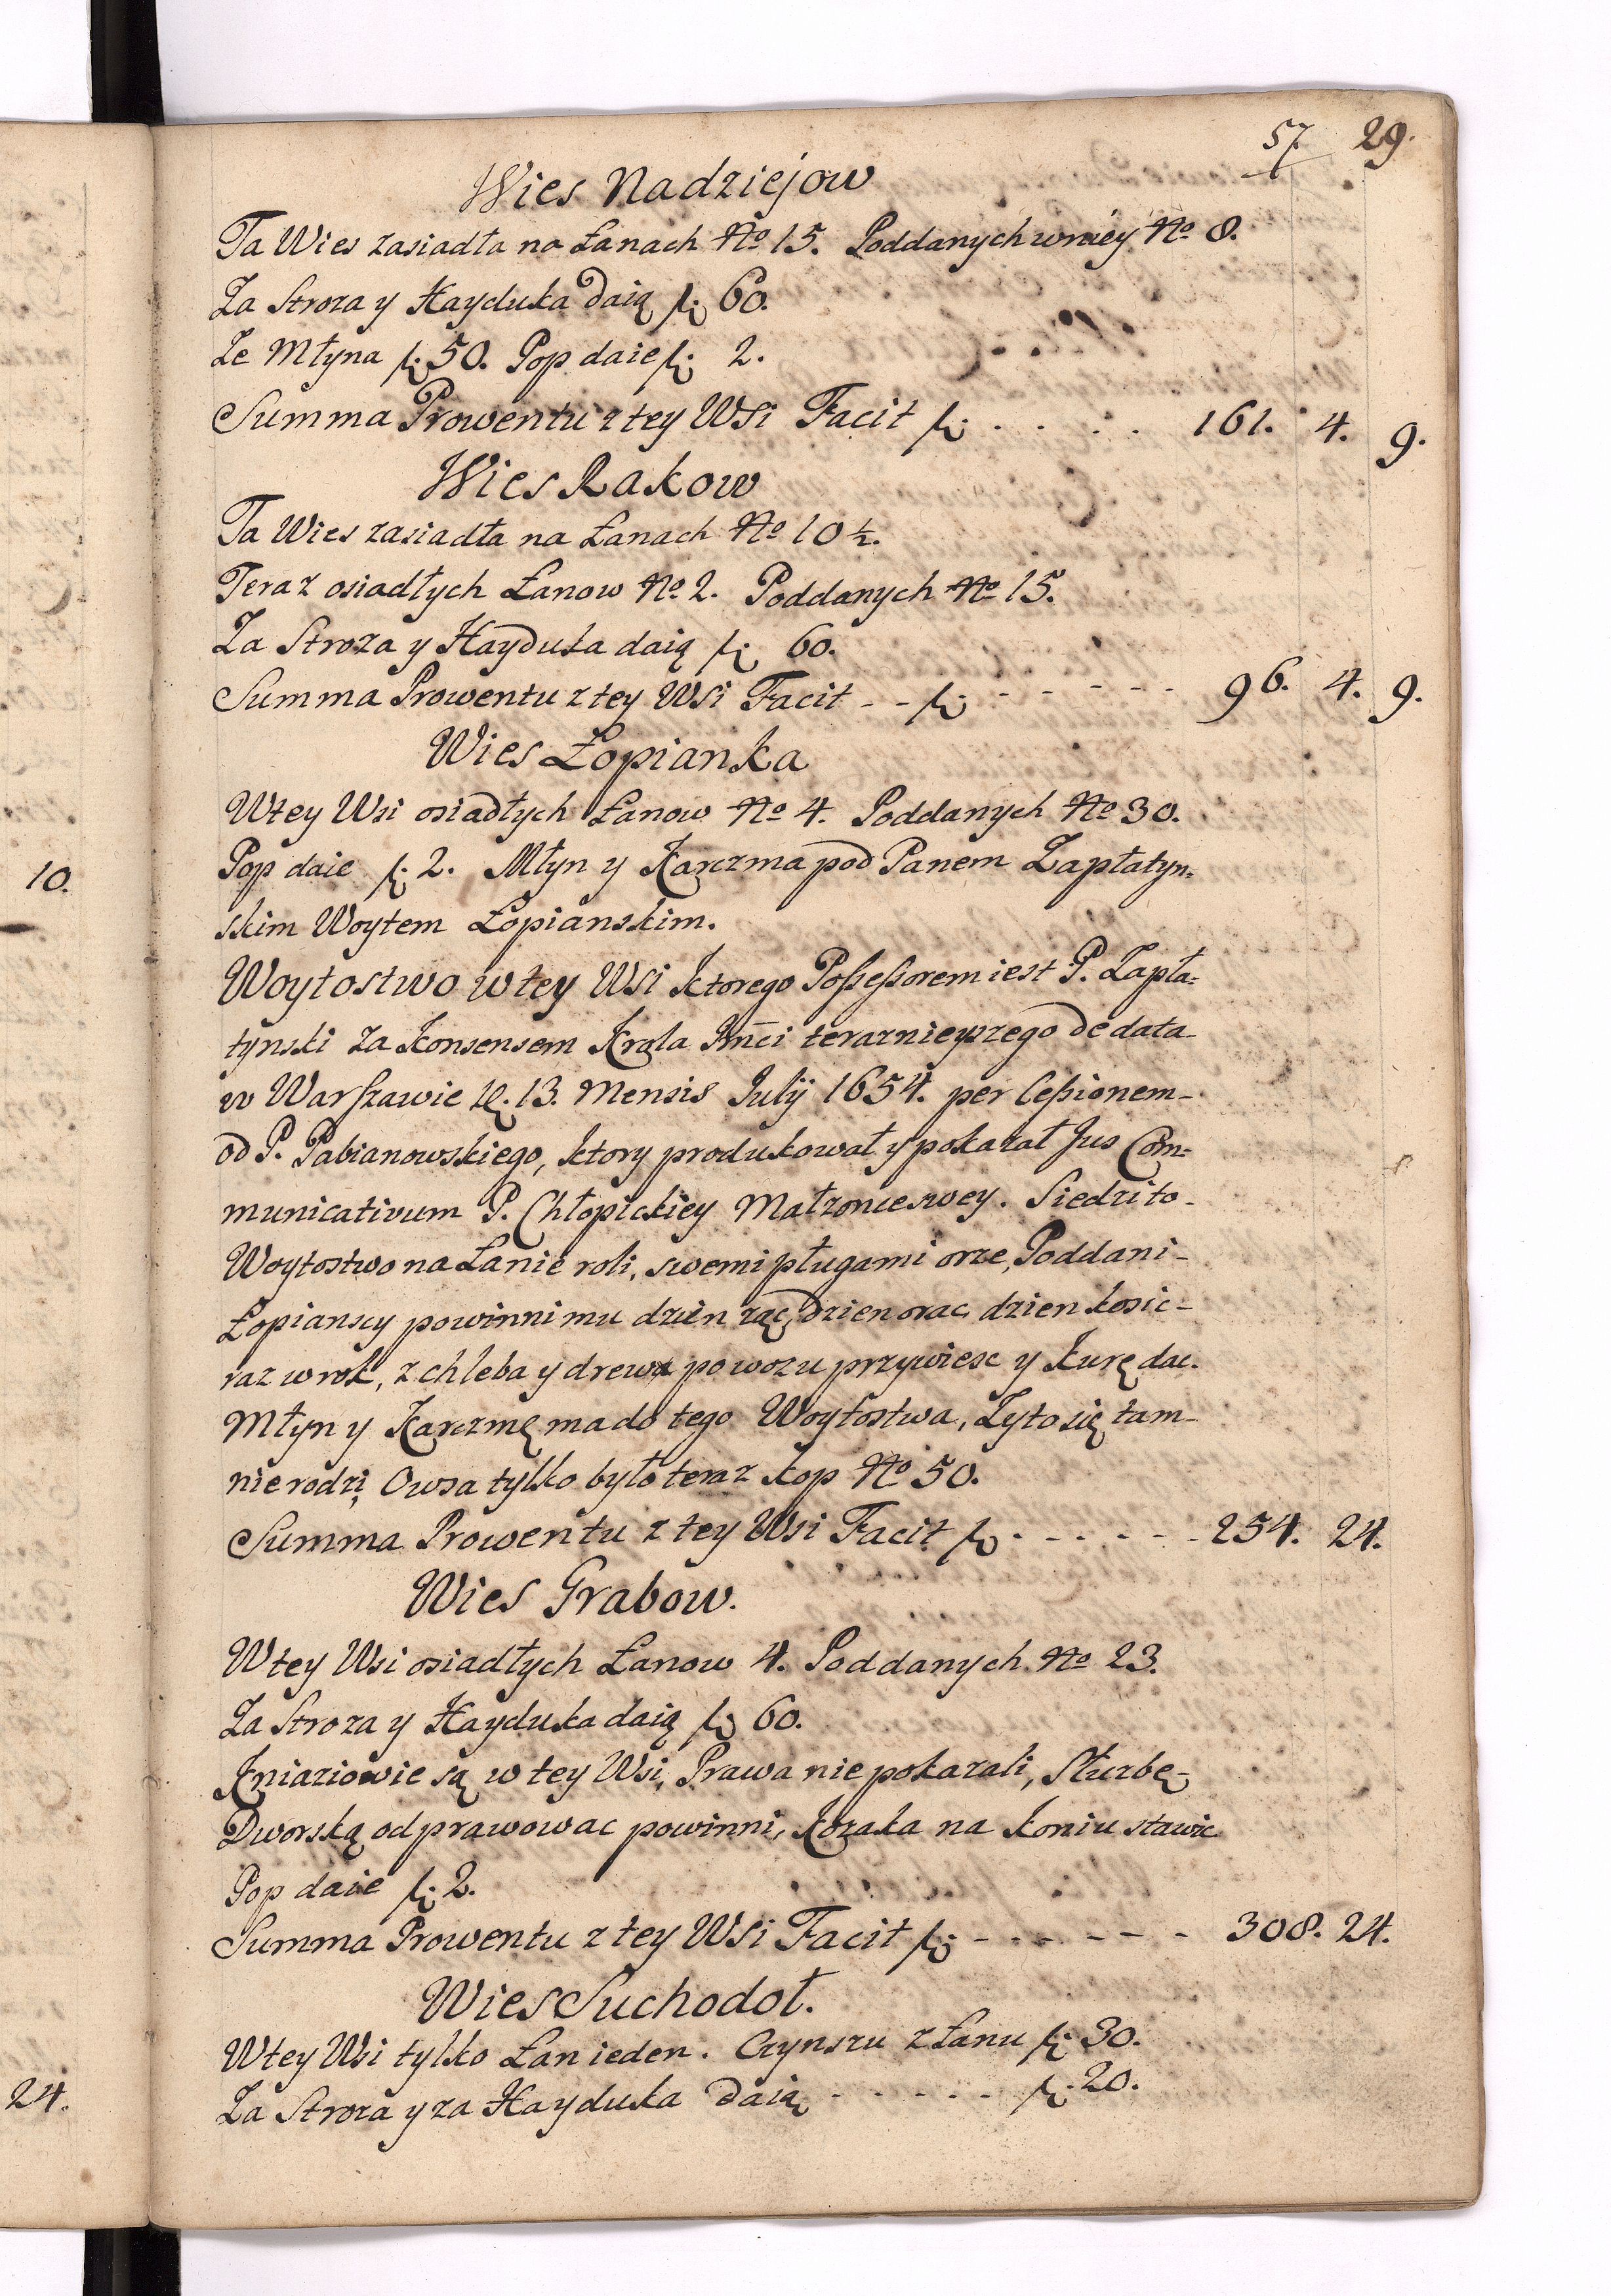 57. 29.
Wies Nadziejow
Ta Wies zasiadła na Łanach No 15. Poddanych wniey No 8.
Za Stroza y Hayduka daią fl. 60.
Ze Młyna fl. 50. Pop daie fl. 2.
Summa Prowentu z tey Wsi Facit fl. . . . . 161. 4. 9.
Wies Rakow
Ta Wies zasiadła na Łanach No 10 ½.
Teraz osiadłych Łanow No 2. Poddanych No 15.
Za Stroza y Hayduka daią fl. 60.
Summa Prowentu z tey Wsi Facit - - fl. - - - - - - 96. 4. 9.
Wies Łopianka
Wtey Wsi osiadłych Łanow No 4. Poddanych No 30.
Pop daie fl. 2. Młyn y Karczma pod Panem Zapłatyn=
skim Woytem Łopianskim.
Woytostwo w tey Wsi ktorego Poßeßorem iest P. Zapła=
tynski za Konsensem Krola Jm̃ci teraznieyszego de data
w Warszawie d. 13. Mensis Julij 1654. per Ceßionem-
od P. Pabianowskiego, ktory produkował y pokazał Jus Com=
municativum P. Chłopickiey Małzonce swey. Siedzi to-
Woytostwo na Łanie roli, swemi pługami orze, Poddani-
Łopianscy powinni mu dzien ząc, dzien orac, dzien kosic-
raz w rok, z chleba y drewa po wozu przywiesc y kurę dac.
Młyn y Karczmę ma do tego Woytostwa, Zyto się tam-
nie rodzi, Owsa tylko było teraz kop No 50.
Summa Prowentu z tey Wsi Facit fl. - - - - - 254. 24.
Wies Grabow.
Wtey Wsi osiadłych Łanow 4. Poddanych No 23.
Za Stroza y Hayduka daią fl. 60.
Kniaziowie są w tey Wsi, Prawa nie pokazali, Słuzbę-
Dworską odprawowac powinni, Kozaka na koniu stawic
Pop daie fl. 2.
Summa Prowentu z tey Wsi Facit fl. - - - - - - 308. 24.
Wies Suchodoł.
Wtey Wsi tylko Łan ieden. Czynszu z Łanu fl. 30.
Za Stroza y za Hayduka daią - - - - - - fl. 20.
10.
24.